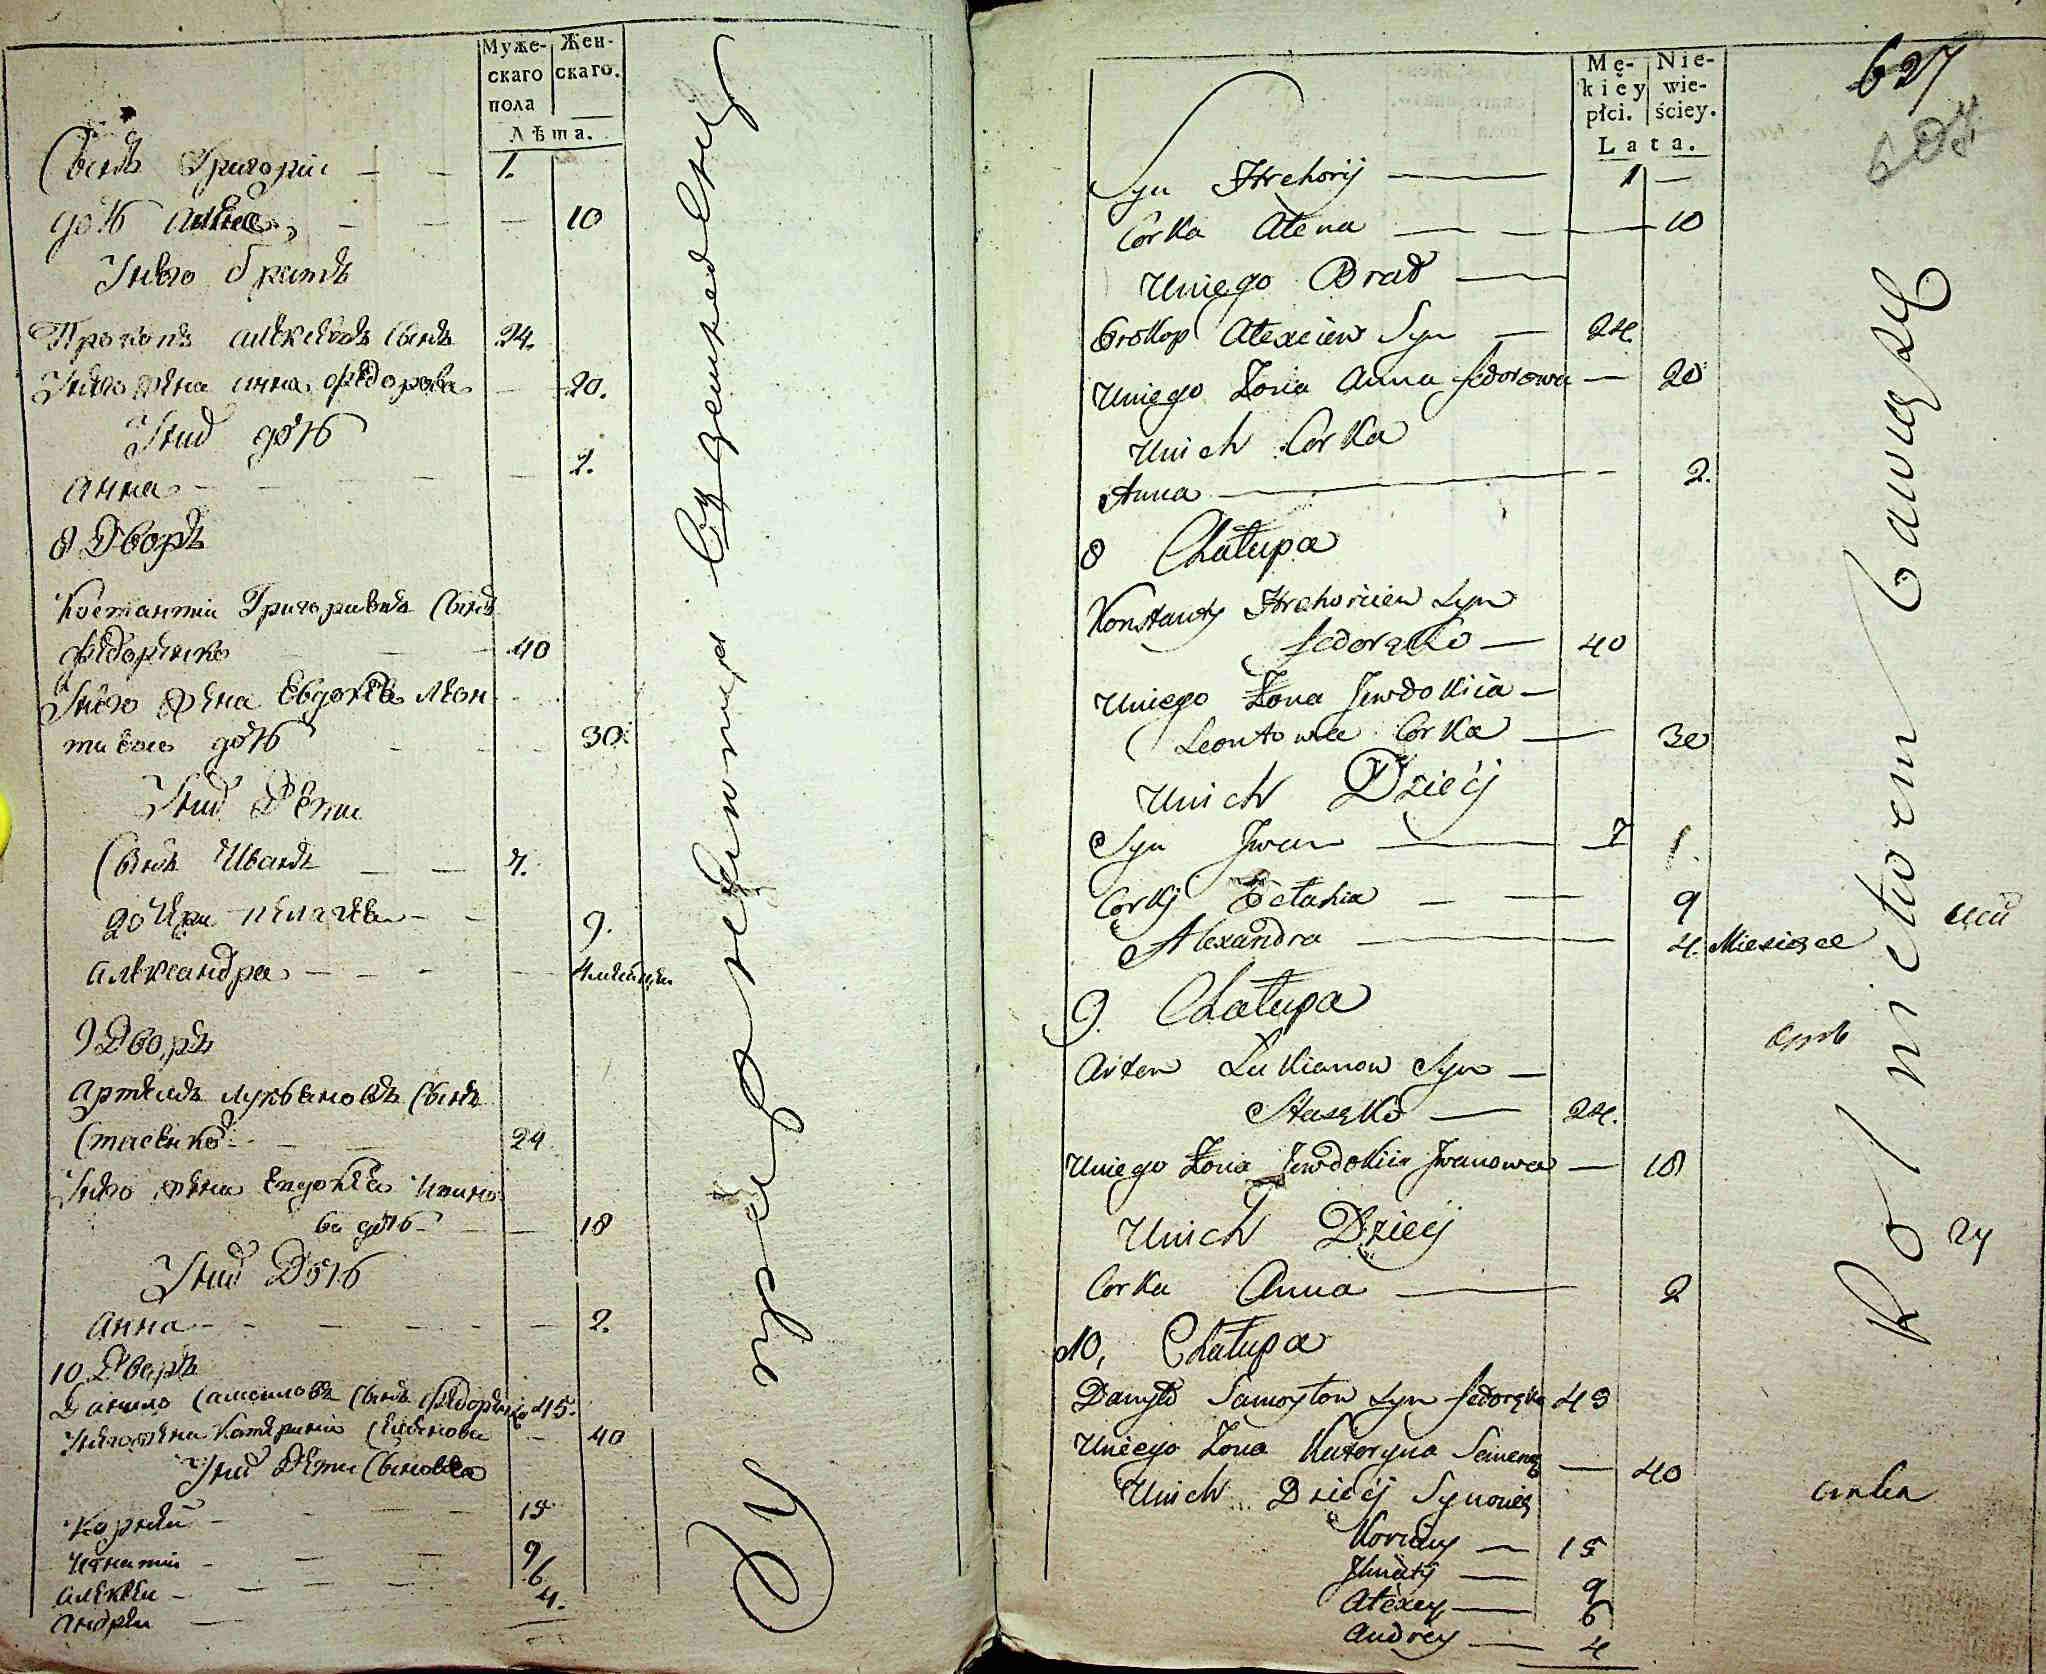 Муже-
скаго
пола
Жен-
скаго.
Лѣта.
Сынъ Григорiи 1.
дочь 10
У него братъ
Прокопъ алексѣевъ сынъ 24.
У него жена анна федорова 20.
У них дочь
анна 2.
8 Дворъ
Костантiи Григориевъ сынъ
федорѣнко 40
У него жена Евдокѣя Леон
тиева дочь 30.
У них дѣти
Сынъ Иванъ 7.
дочери пелагея 9.
александра 4 месяца
9 Дворъ
артемъ лукьяновъ сынъ
Стасенко 24
У него жена Евдокѣя ивано
ва дочь 18
У них Дочь
анна 2.
10 Дворъ
Данило Самоиловъ сынъ федоренко 45.
У него жена Катерина Семенова 40
У них Дети Сыновья
Корнѣй 15
Игнатiи 9
алексѣи 6
андрѣи 4.
Mę-
kiéy
płci.
Nie-
wie-
ściey.
Lata.
627
Syn Hrehorij 1
Corka Alena 10
U niego Brad
Prokop Alexeiew Syn 24.
U niego Żona Anna fedorowa 20
U nich Corka
Anna 2.
8 Chałupa
Konstanty Hrehoriew Syn
fedoręko 40
U niego Żona Jewdokija
Leontowa Corka 30
U nich Dzieci
Syn Jwan 7
Corkij Pełahia 9
Alexandra 4. Miesiące
9. Chałupa
Artem Lukianow Syn
Stasęko 24.
U niego Żona Jewdokija Jwanowa 18
U nich Dziecij
Corka Anna 2
10, Chałupa
Danyło Samoyłow Syn fedoręko 45
U niego Żona Kateryna Semenowa 40
U nich Dziecij Synowie
Korniey 15
Jhnatij 9
Alexey 6
Andrey 4
Rolnictwem bawią się